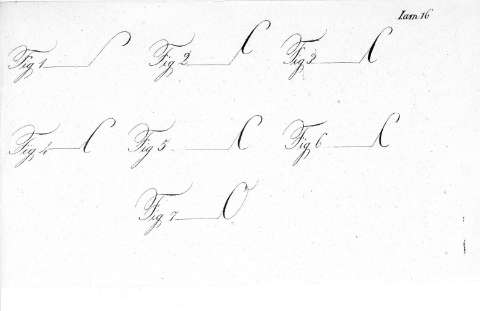 Iam 16
Fig 1
Fig 2 C
Fig 3 C
Fig 4 C
Fig 5 C
Fig 6 C
Fig 7 O